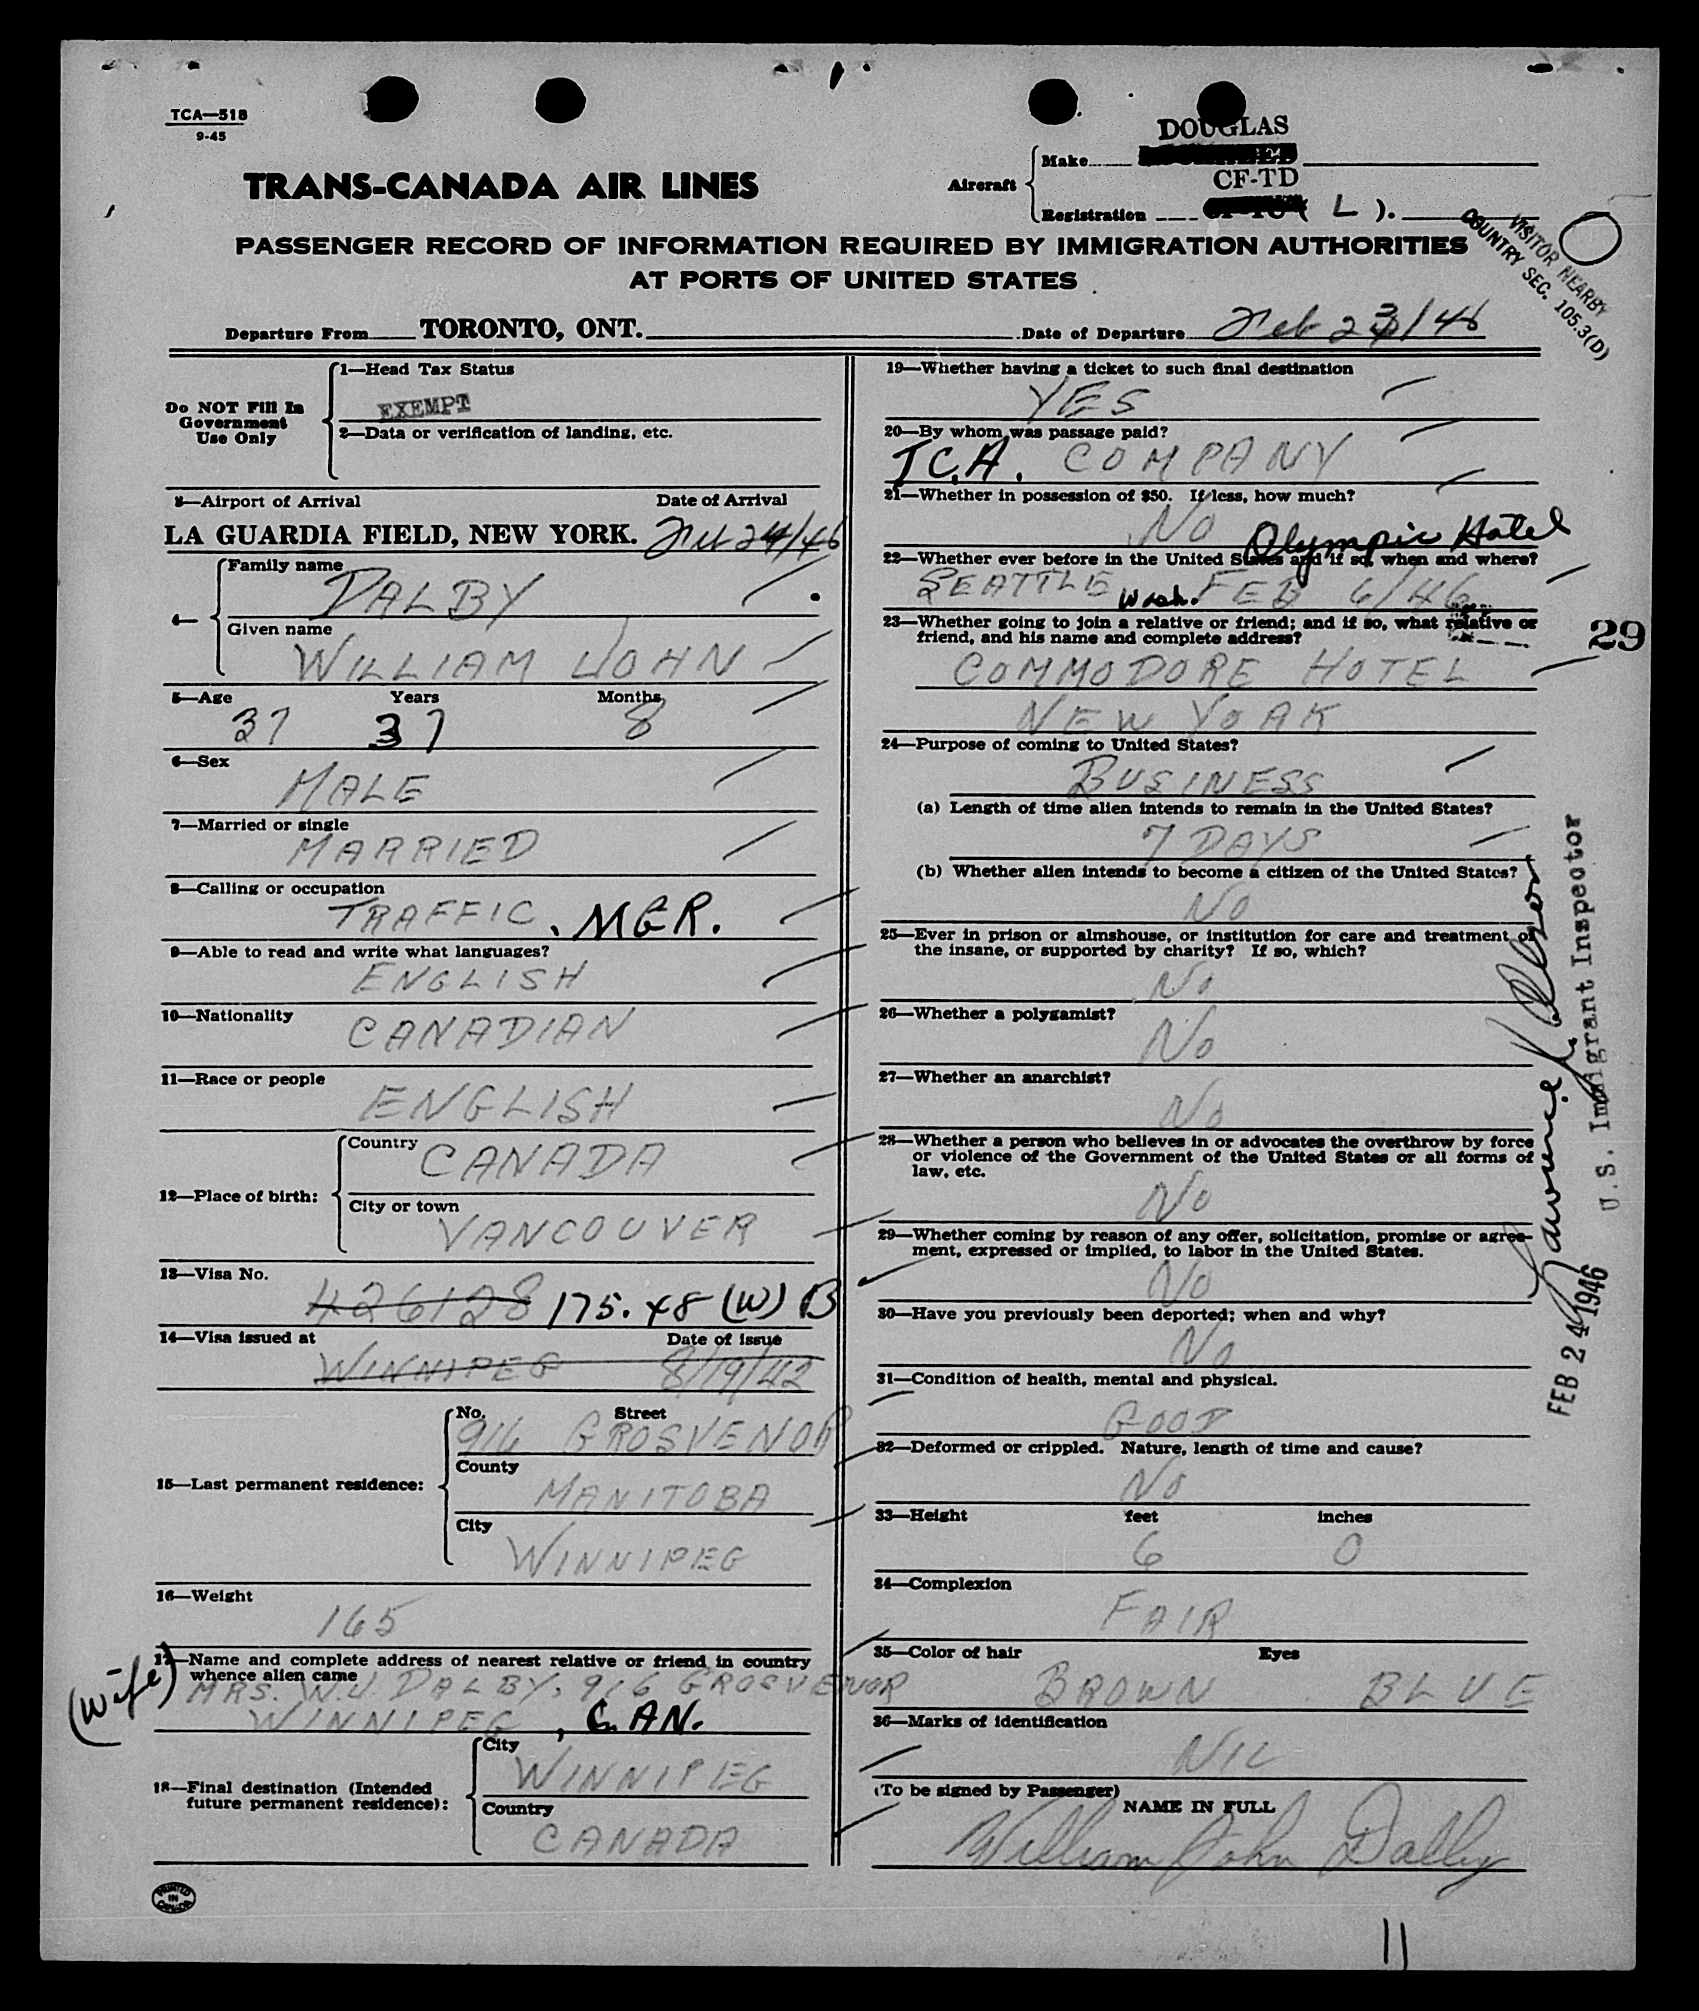 TCA—518
9-45
TRANS-CANADA AIR LINES
DOUGLAS
Aircraft
Make
CF-TD
Registration ( L ).
VISITOR NEARBY
COUNTRY SEC. 105.3(D)
PASSENGER RECORD OF INFORMATION REQUIRED BY IMMIGRATION AUTHORITIES
AT PORTS OF UNITED STATES
Departure From TORONTO, ONT. Date of Departure Feb 23/46
Do NOT Fill In
Government
Use Only
1—Head Tax Status
EXEMPT
2—Data or verification of landing, etc.
3—Airport of Arrival Date of Arrival
LA GUARDIA FIELD, NEW YORK. Feb 24/46
4—
Family name
DALBY
Given name
WILLIAM JOHN
5—Age Years Months
37 37 8
6—Sex
MALE
7—Married or single
MARRIED
8—Calling or occupation
TRAFFIC, MGR.
9—Able to read and write what languages?
ENGLISH
10—Nationality
CANADIAN
11—Race or people
ENGLISH
12—Place of birth:
Country
CANADA
City or town
VANCOUVER
13—Visa No.
426128 175.48 (W) B
14—Visa issued at Date of issue
WINNIPEG 8/19/42
15—Last permanent residence:
No. Street
916 GROSVENOR
County
MANITOBA
City
WINNIPEG
16—Weight
165
17—Name and complete address of nearest relative or friend in country
whence alien came
(wife)
MRS. W.J. DALBY, 916 GROSVENOR
WINNIPEG, CAN.
18—Final destination (Intended
future permanent residence):
City
WINNIPEG
Country
CANADA
PRINTED
IN
CANADA
19—Whether having a ticket to such final destination
YES
20—By whom was passage paid?
T.C.A. COMPANY
21—Whether in possession of $50. If less, how much?
NO
Olympic Hotel
22—Whether ever before in the United States and if so, when and where?
SEATTLE Wash. FEB 6/46
23—Whether going to join a relative or friend; and if so, what relative or
friend, and his name and complete address?
29
COMMODORE HOTEL
NEW YORK
24—Purpose of coming to United States?
BUSINESS
(a) Length of time alien intends to remain in the United States?
7 DAYS
(b) Whether alien intends to become a citizen of the United States?
NO
25—Ever in prison or almshouse, or institution for care and treatment of
the insane, or supported by charity? If so, which?
NO
26—Whether a polygamist?
NO
27—Whether an anarchist?
NO
28—Whether a person who believes in or advocates the overthrow by force
or violence of the Government of the United States or all forms of
law, etc.
NO
29—Whether coming by reason of any offer, solicitation, promise or agree-
ment, expressed or implied, to labor in the United States.
NO
30—Have you previously been deported; when and why?
NO
31—Condition of health, mental and physical.
GOOD
32—Deformed or crippled. Nature, length of time and cause?
NO
33—Height feet inches
6 0
34—Complexion
FAIR
35—Color of hair Eyes
BROWN BLUE
36—Marks of identification
NIL
(To be signed by Passenger)
NAME IN FULL
William John Dalby
U.S. Immigrant Inspector
FEB 24 1946
11